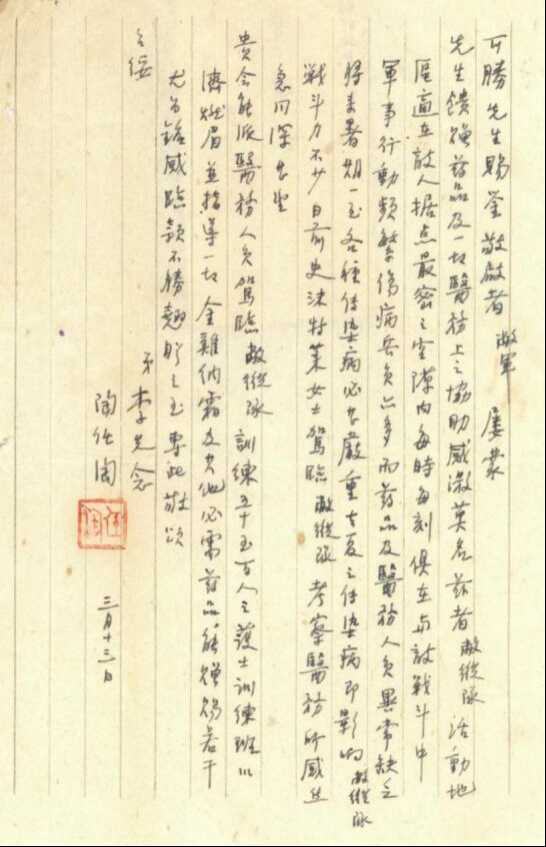 可勝先生賜鑒敬啟者 敝軍 屢蒙
先生饋贈葯品及一切醫務上之協助感激莫名茲者 敝縱隊 活動地
區適在敵人据点最密之空隙内每時每刻俱在与敵战斗中
軍事行動頻繁傷病兵員亦多而葯品及醫務人員異常缺乏
将来暑期一至各種传染病必甚嚴重去夏之传染病即影响 敝縱隊
战斗力不少日前史沫特萊女士駕臨 敝縱隊 考察醫務所感亦
急同深甚望
貴会能派醫務人員駕臨 敝縱隊 訓練五十至百人之護士訓練班以
濟燃眉並指導一切金雞納霜及其他必需葯品能贈賜若干
尤为銘感臨頴不勝翹盼之至專此敬頌
公绥
弟 李先念
陶仕陶
三月十三日